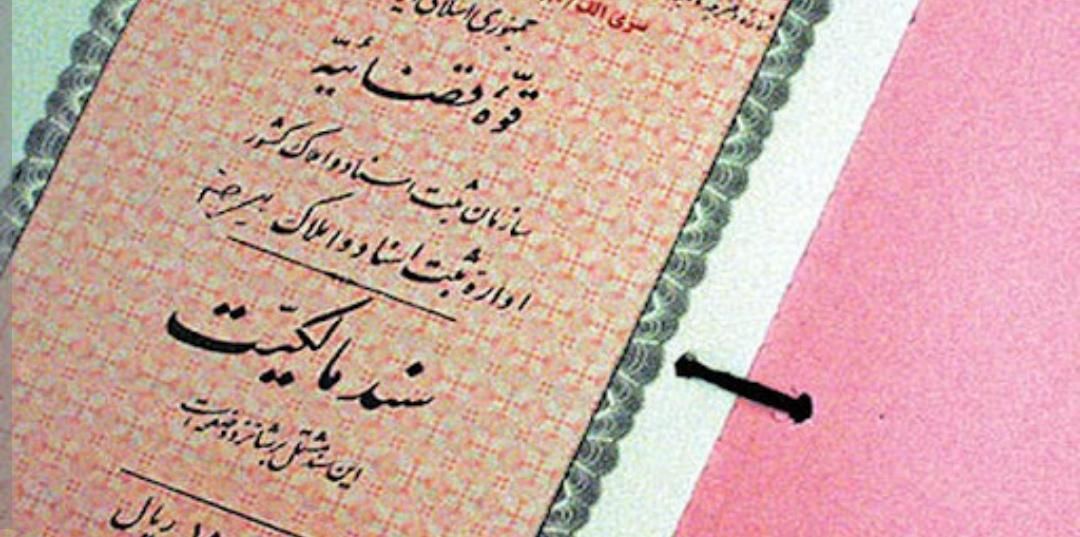 سری الف
جمهوری اسلامی
قوّهٔ قضائیّه
سازمان ثبت اسناد و املاک کشور
اداره ثبت اسناد و املاک بیرجند
سند مالکیّت
این سند مشتمل بر شانزده صفحه است
ریال